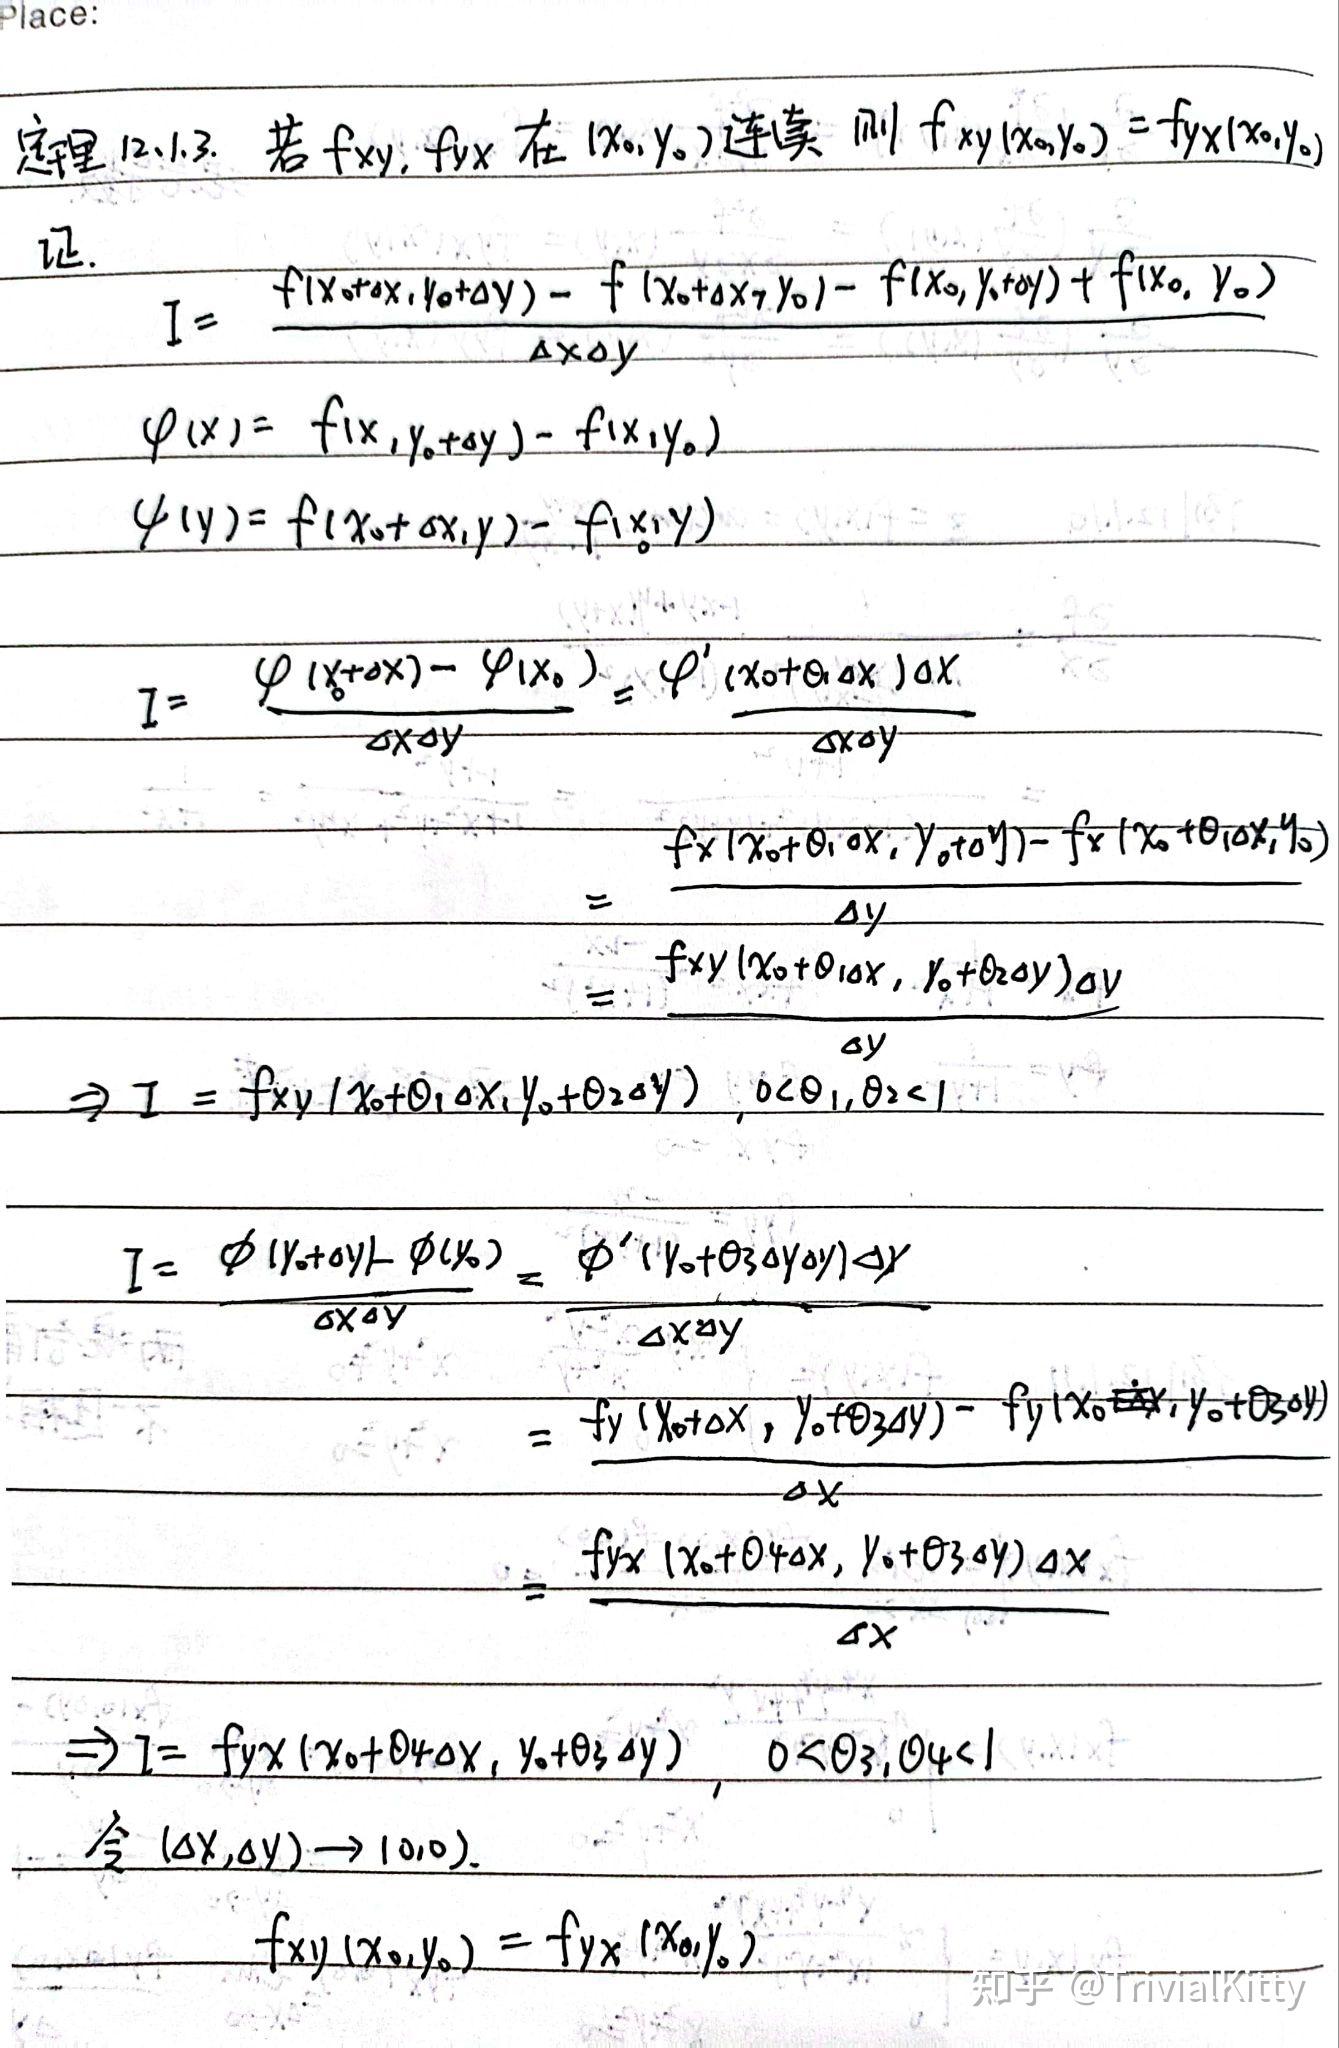 Place:
定理 12.1.3. 若 fxy, fyx 在 (x₀, y₀) 连续 则 fxy(x₀,y₀) = fyx(x₀,y₀)
证.
I = f(x₀+Δx, y₀+Δy) - f(x₀+Δx, y₀) - f(x₀, y₀+Δy) + f(x₀, y₀)
ΔxΔy
φ(x) = f(x, y₀+Δy) - f(x, y₀)
ψ(y) = f(x₀+Δx, y) - f(x₀, y)
I = φ(x₀+Δx) - φ(x₀) = φ'(x₀+θ₁Δx)Δx
ΔxΔy ΔxΔy
= fx(x₀+θ₁Δx, y₀+Δy) - fx(x₀+θ₁Δx, y₀)
Δy
= fxy(x₀+θ₁Δx, y₀+θ₂Δy)Δy
Δy
⇒ I = fxy(x₀+θ₁Δx, y₀+θ₂Δy), 0<θ₁,θ₂<1
I = ϕ(y₀+Δy) - ϕ(y₀) = ϕ'(y₀+θ₃ΔyΔy)Δy
ΔxΔy ΔxΔy
= fy(x₀+Δx, y₀+θ₃Δy) - fy(x₀, y₀+θ₃Δy)
Δx
= fyx(x₀+θ₄Δx, y₀+θ₃Δy)Δx
Δx
⇒ I = fyx(x₀+θ₄Δx, y₀+θ₃Δy), 0<θ₃,θ₄<1
令 (Δx,Δy) → (0,0).
fxy(x₀,y₀) = fyx(x₀,y₀)
知乎 @TrivialKitty